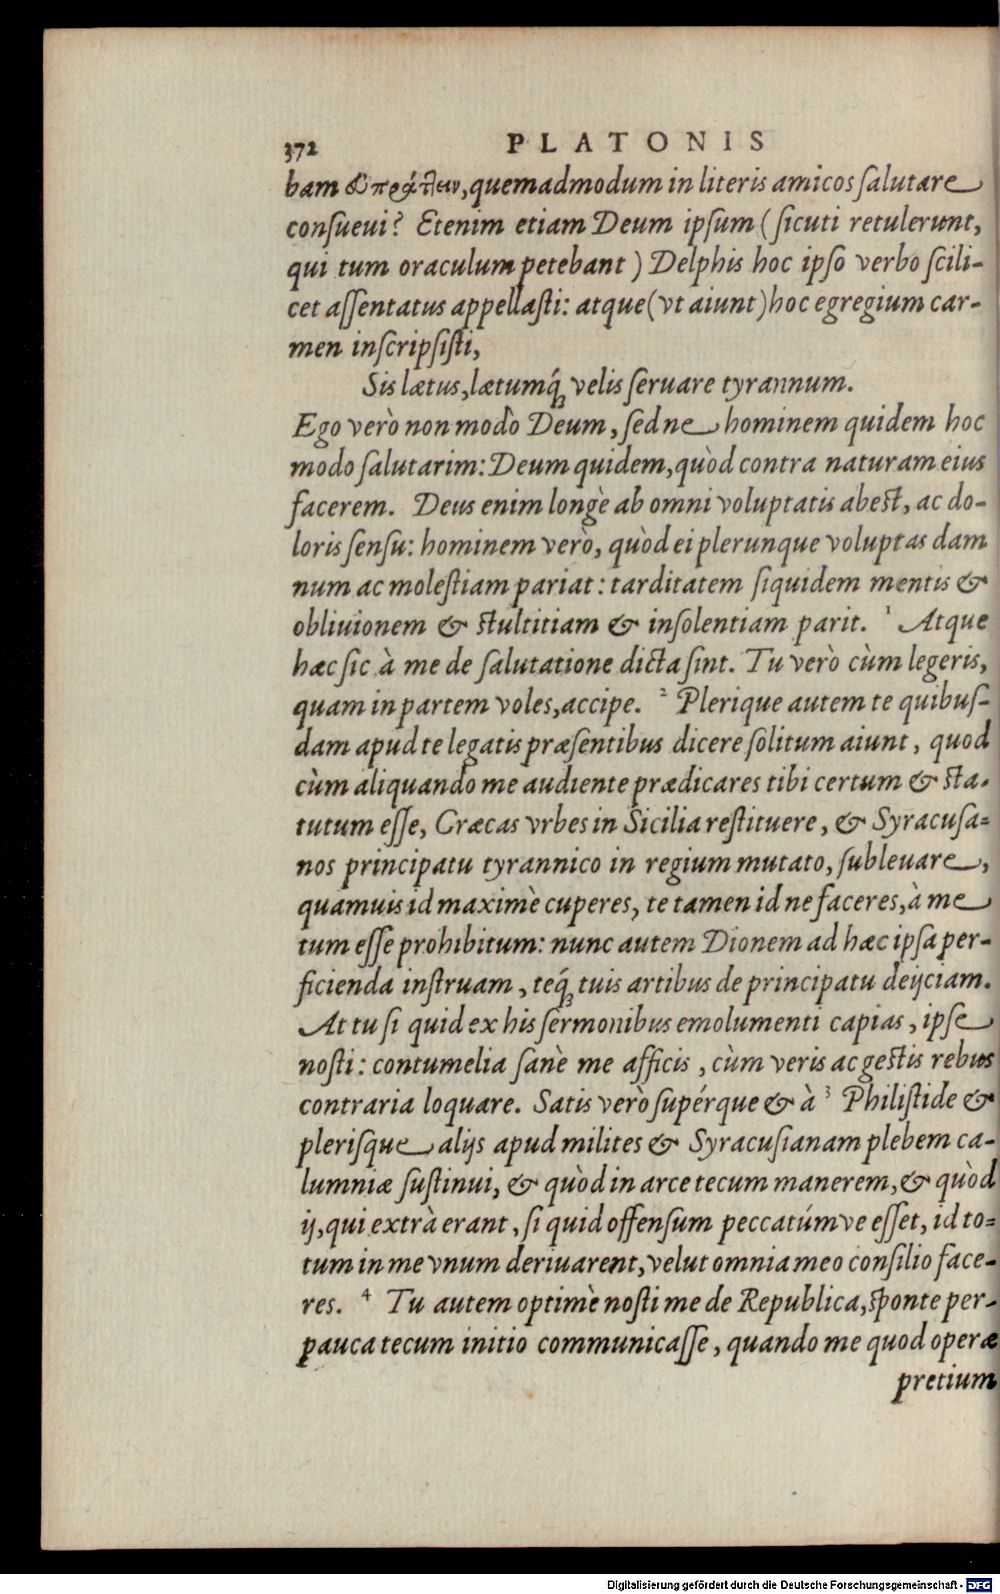 372 PLATONIS
bam εὖ πράττειν, quemadmodum in literis amicos salutare
consueui? Etenim etiam Deum ipsum (sicuti retulerunt,
qui tum oraculum petebant) Delphis hoc ipso verbo scili-
cet assentatus appellasti: atque (vt aiunt) hoc egregium car-
men inscripsisti,
Sis lætus, lætumq́; velis seruare tyrannum.
Ego verò non modò Deum, sed ne hominem quidem hoc
modo salutarim: Deum quidem, quòd contra naturam eius
facerem. Deus enim longè ab omni voluptatis abest, ac do-
loris sensu: hominem verò, quòd ei plerunque voluptas dam
num ac molestiam pariat: tarditatem siquidem mentis &
obliuionem & stultitiam & insolentiam parit. ¹ Atque
hæc sic à me de salutatione dicta sint. Tu verò cùm legeris,
quam in partem voles, accipe. ² Plerique autem te quibus-
dam apud te legatis præsentibus dicere solitum aiunt, quod
cùm aliquando me audiente prædicares tibi certum & sta-
tutum esse, Græcas vrbes in Sicilia restituere, & Syracusa-
nos principatu tyrannico in regium mutato, subleuare,
quamuis id maximè cuperes, te tamen id ne faceres, à me
tum esse prohibitum: nunc autem Dionem ad hæc ipsa per-
ficienda instruam, teq́; tuis artibus de principatu deijciam.
At tu si quid ex his sermonibus emolumenti capias, ipse
nosti: contumelia sanè me afficis, cùm veris ac gestis rebus
contraria loquare. Satis verò supérque & à ³ Philistide &
plerisque alijs apud milites & Syracusianam plebem ca-
lumniæ sustinui, & quòd in arce tecum manerem, & quòd
ij, qui extrà erant, si quid offensum peccatúmve esset, id to-
tum in me vnum deriuarent, velut omnia meo consilio face-
res. ⁴ Tu autem optimè nosti me de Republica, sponte per-
pauca tecum initio communicasse, quando me quod operæ
pretium
Digitalisierung gefördert durch die Deutsche Forschungsgemeinschaft - DFG